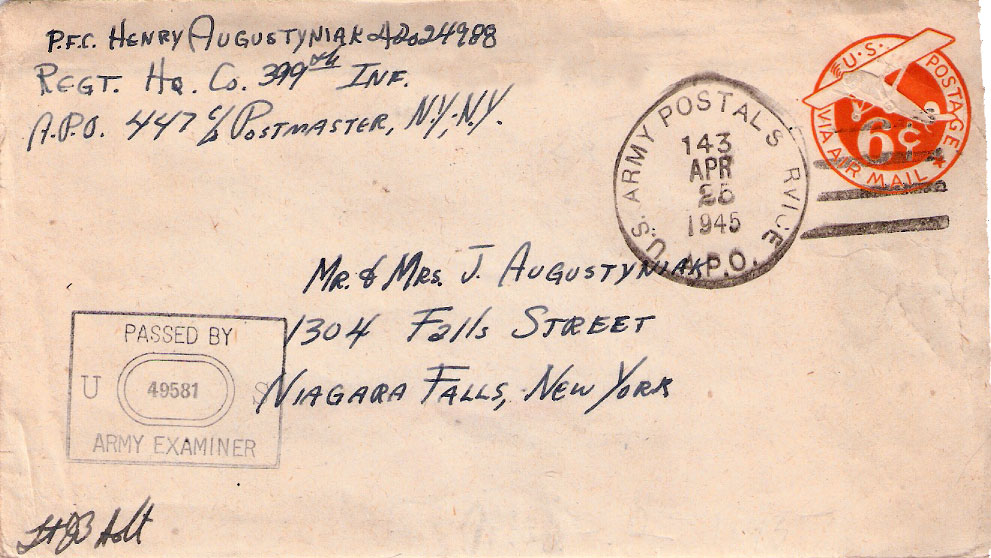 P.F.C. HENRY AUGUSTYNIAK 42024988
REGT. HQ. CO. 399th INF.
A.P.O. 447 c/o POSTMASTER, N.Y., N.Y.
U.S. POSTAGE
6¢
VIA AIR MAIL
U.S. ARMY POSTAL S RVICE
143
APR
25
1945
A.P.O.
MR. & MRS. J. AUGUSTYNIAK
1304 Falls STREET
NIAGARA FALLS, NEW YORK
PASSED BY
U 49581 S
ARMY EXAMINER
Lt JB Holt